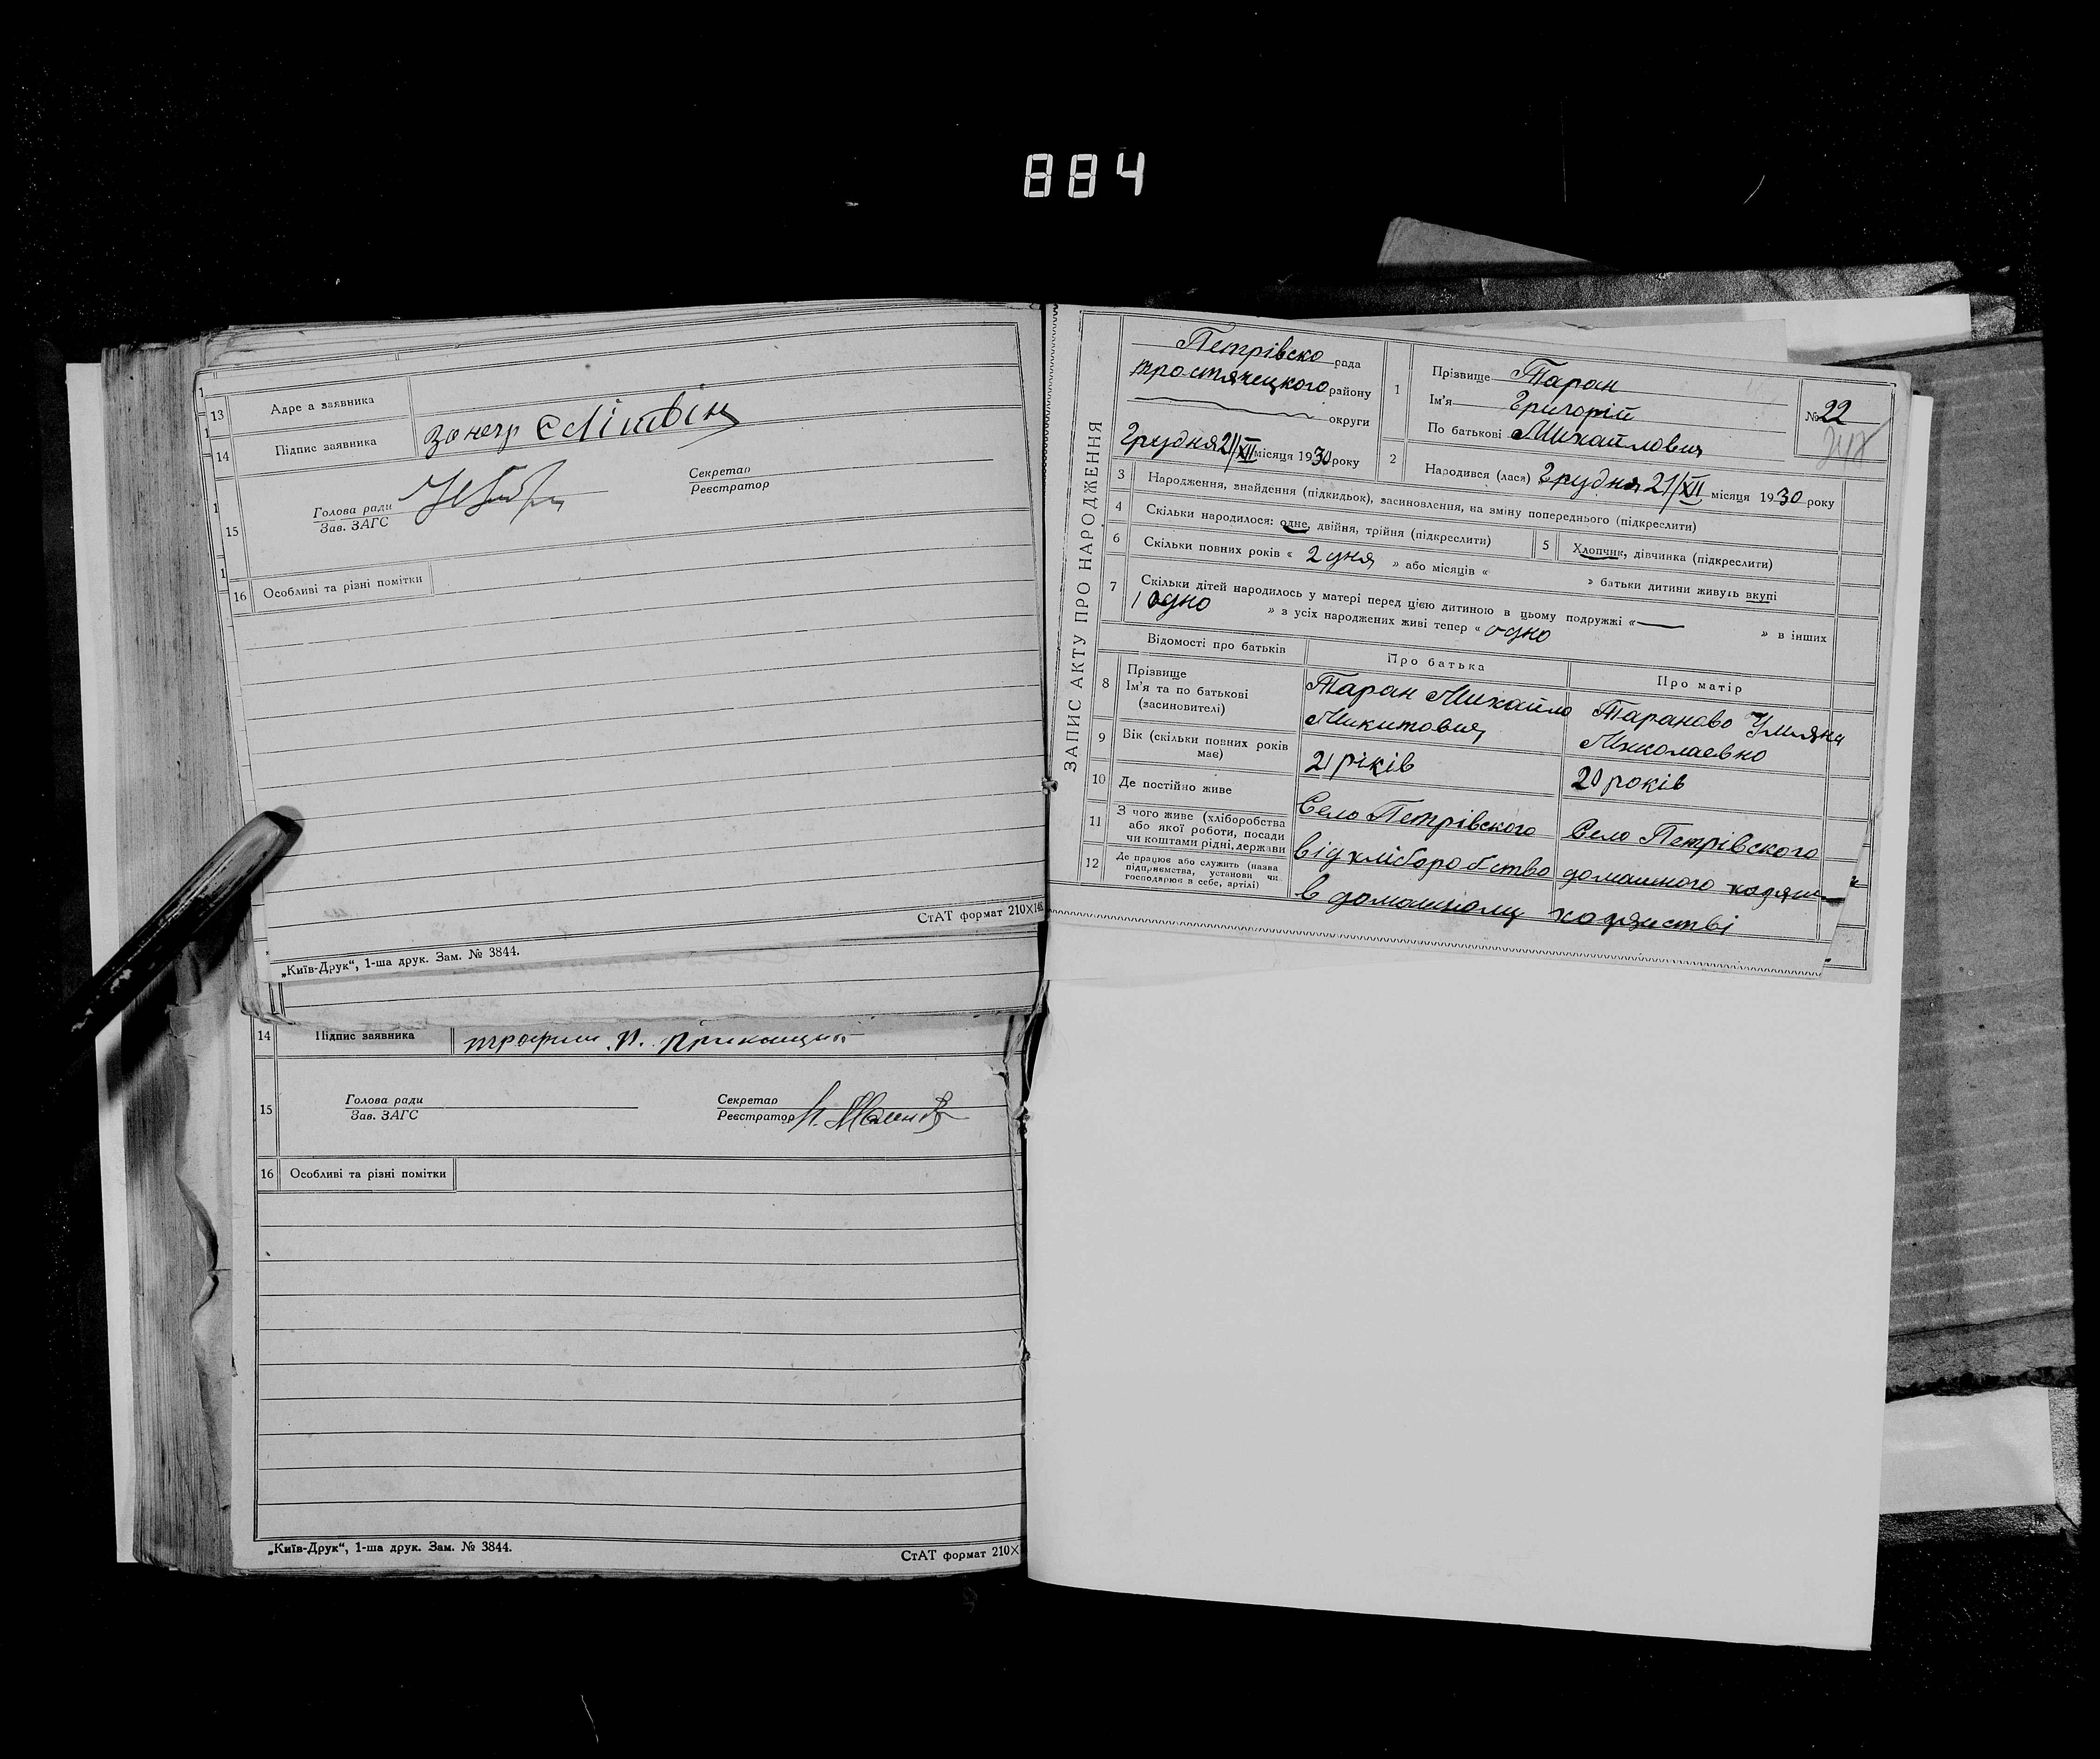 884
13 Адре а заявника
14 Підпис заявника за негр Єлітвін
Голова ради
Зав. ЗАГС
Секретар
Реєстратор
15
16 Особливі та різні помітки
СтАТ формат 210×148
„Київ-Друк“, 1-ша друк. Зам. № 3844.
14 Підпис заявника
15
Голова ради
Зав. ЗАГС
Секретар
Реєстратор
16 Особливі та різні помітки
„Київ-Друк“, 1-ша друк. Зам. № 3844.
СтАТ формат 210×
ЗАПИС АКТУ ПРО НАРОДЖЕННЯ
Петрівско рада
тростянецкого району
округи
Грудня 21/XII місяця 1930 року
1 Прізвище Таран
Ім'я Григорій
По батькові Михайлович
№ 22
2 Народився (лася) Грудня 21/XII місяця 1930 року
3 Народження, знайдення (підкидьок), засиновлення, на зміну попереднього (підкреслити)
4 Скільки народилося: одне, двійня, трійня (підкреслити)
5 Хлопчик, дівчинка (підкреслити)
6 Скільки повних років « 2 дня » або місяців « » батьки дитини живуть вкупі
7 Скільки дітей народилось у матері перед цією дитиною в цьому подружжі « — » в інших
1 одно » з усіх народжених живі тепер « одно
Відомості про батьків Про батька Про матір
8 Прізвище
Ім'я та по батькові
(засиновителі)
Таран Михайло
Микитович
Тараново Уляна
Миколаевно
9 Вік (скільки повних років
має)
21 ріків
20 років
10 Де постійно живе
Село Петрівского
Село Петрівского
11 З чого живе (хліборобства
або якої роботи, посади
чи коштами рідні, держави
від хліборобство
домашного
12 Де працює або служить (назва
підприємства, установи чи
господарює в себе, артілі)
в домашному хазяистві